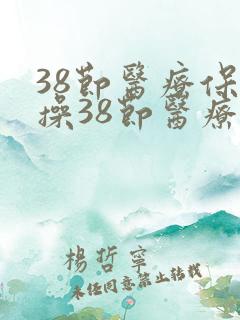 38節醫療保
操38節醫療
楊哲寧
未經同意禁止轉載